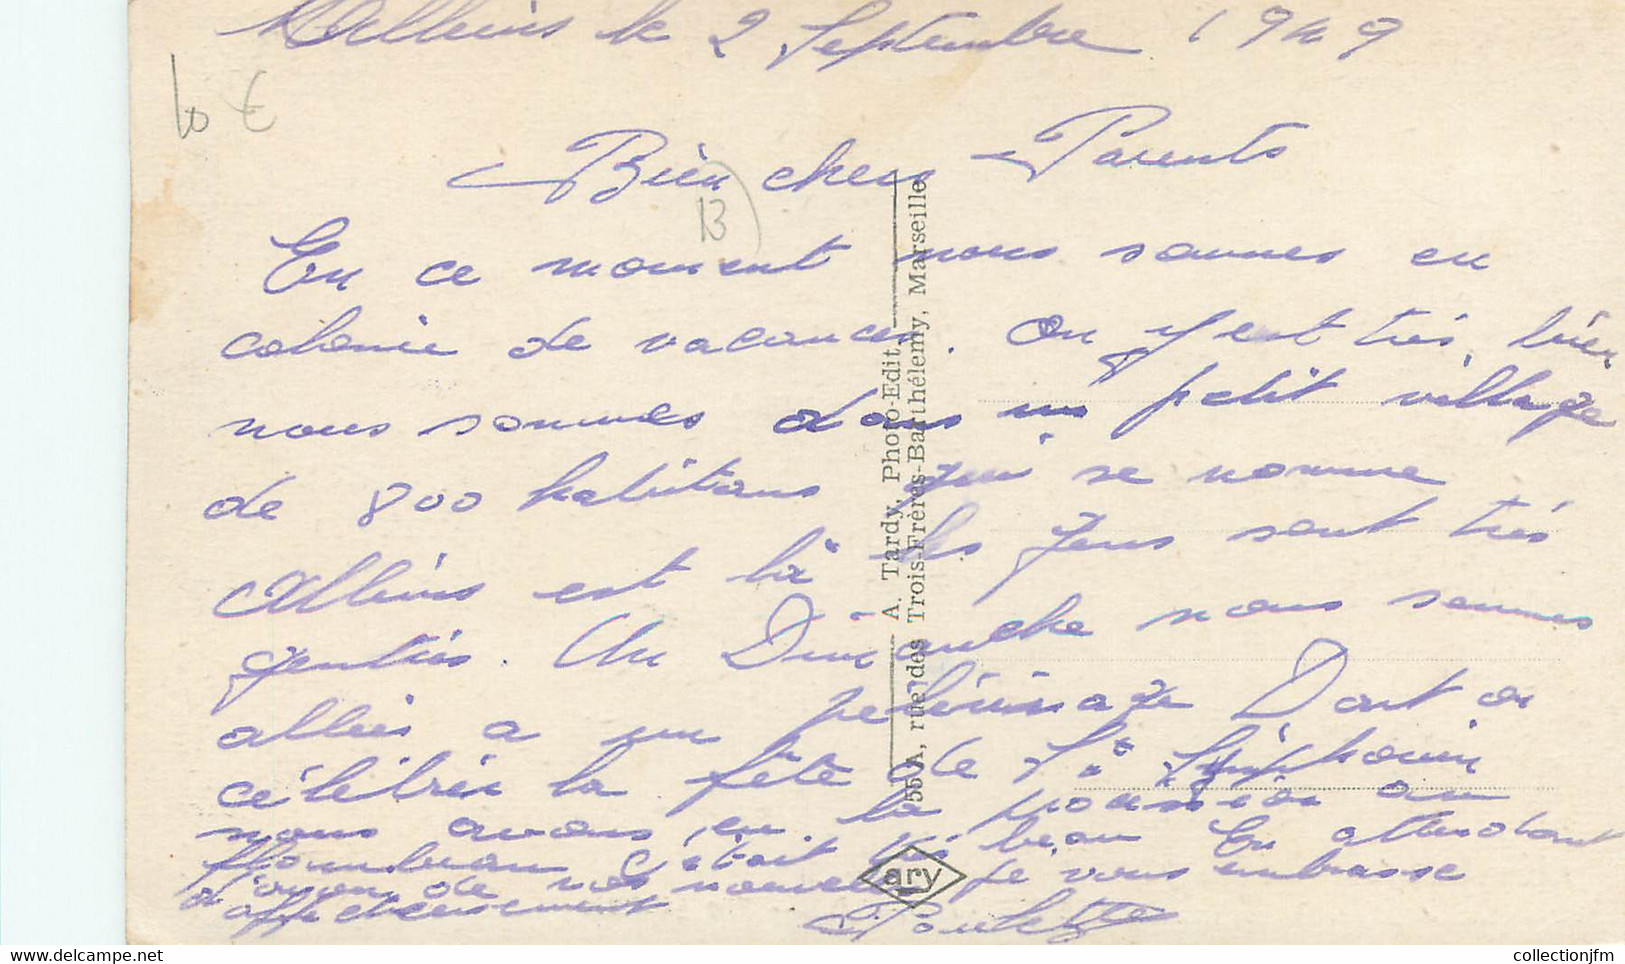 Alleins le 2 Septembre 1949
10 €
Bien chers Parents
13
En ce moment nous sommes en
colonie de vacances. On y est très bien
nous sommes dans un petit village
de 800 habitans qui se nomme
Alleins est là les gens sont très
gentils. Un Dimanche nous sommes
allés a un pelerinage Dont on
célébrer la fête de St Symphorien
nous avons eu la procession au
flambeau c'était très beau En attendant
d'avoir de nos nouvelles je vous embrasse
affectueusement Paulette
A. Tardy, Photo-Edit.
55 A, rue des Trois-Frères-Barthélemy, Marseille
ary
collectionjfm
www.delcampe.net